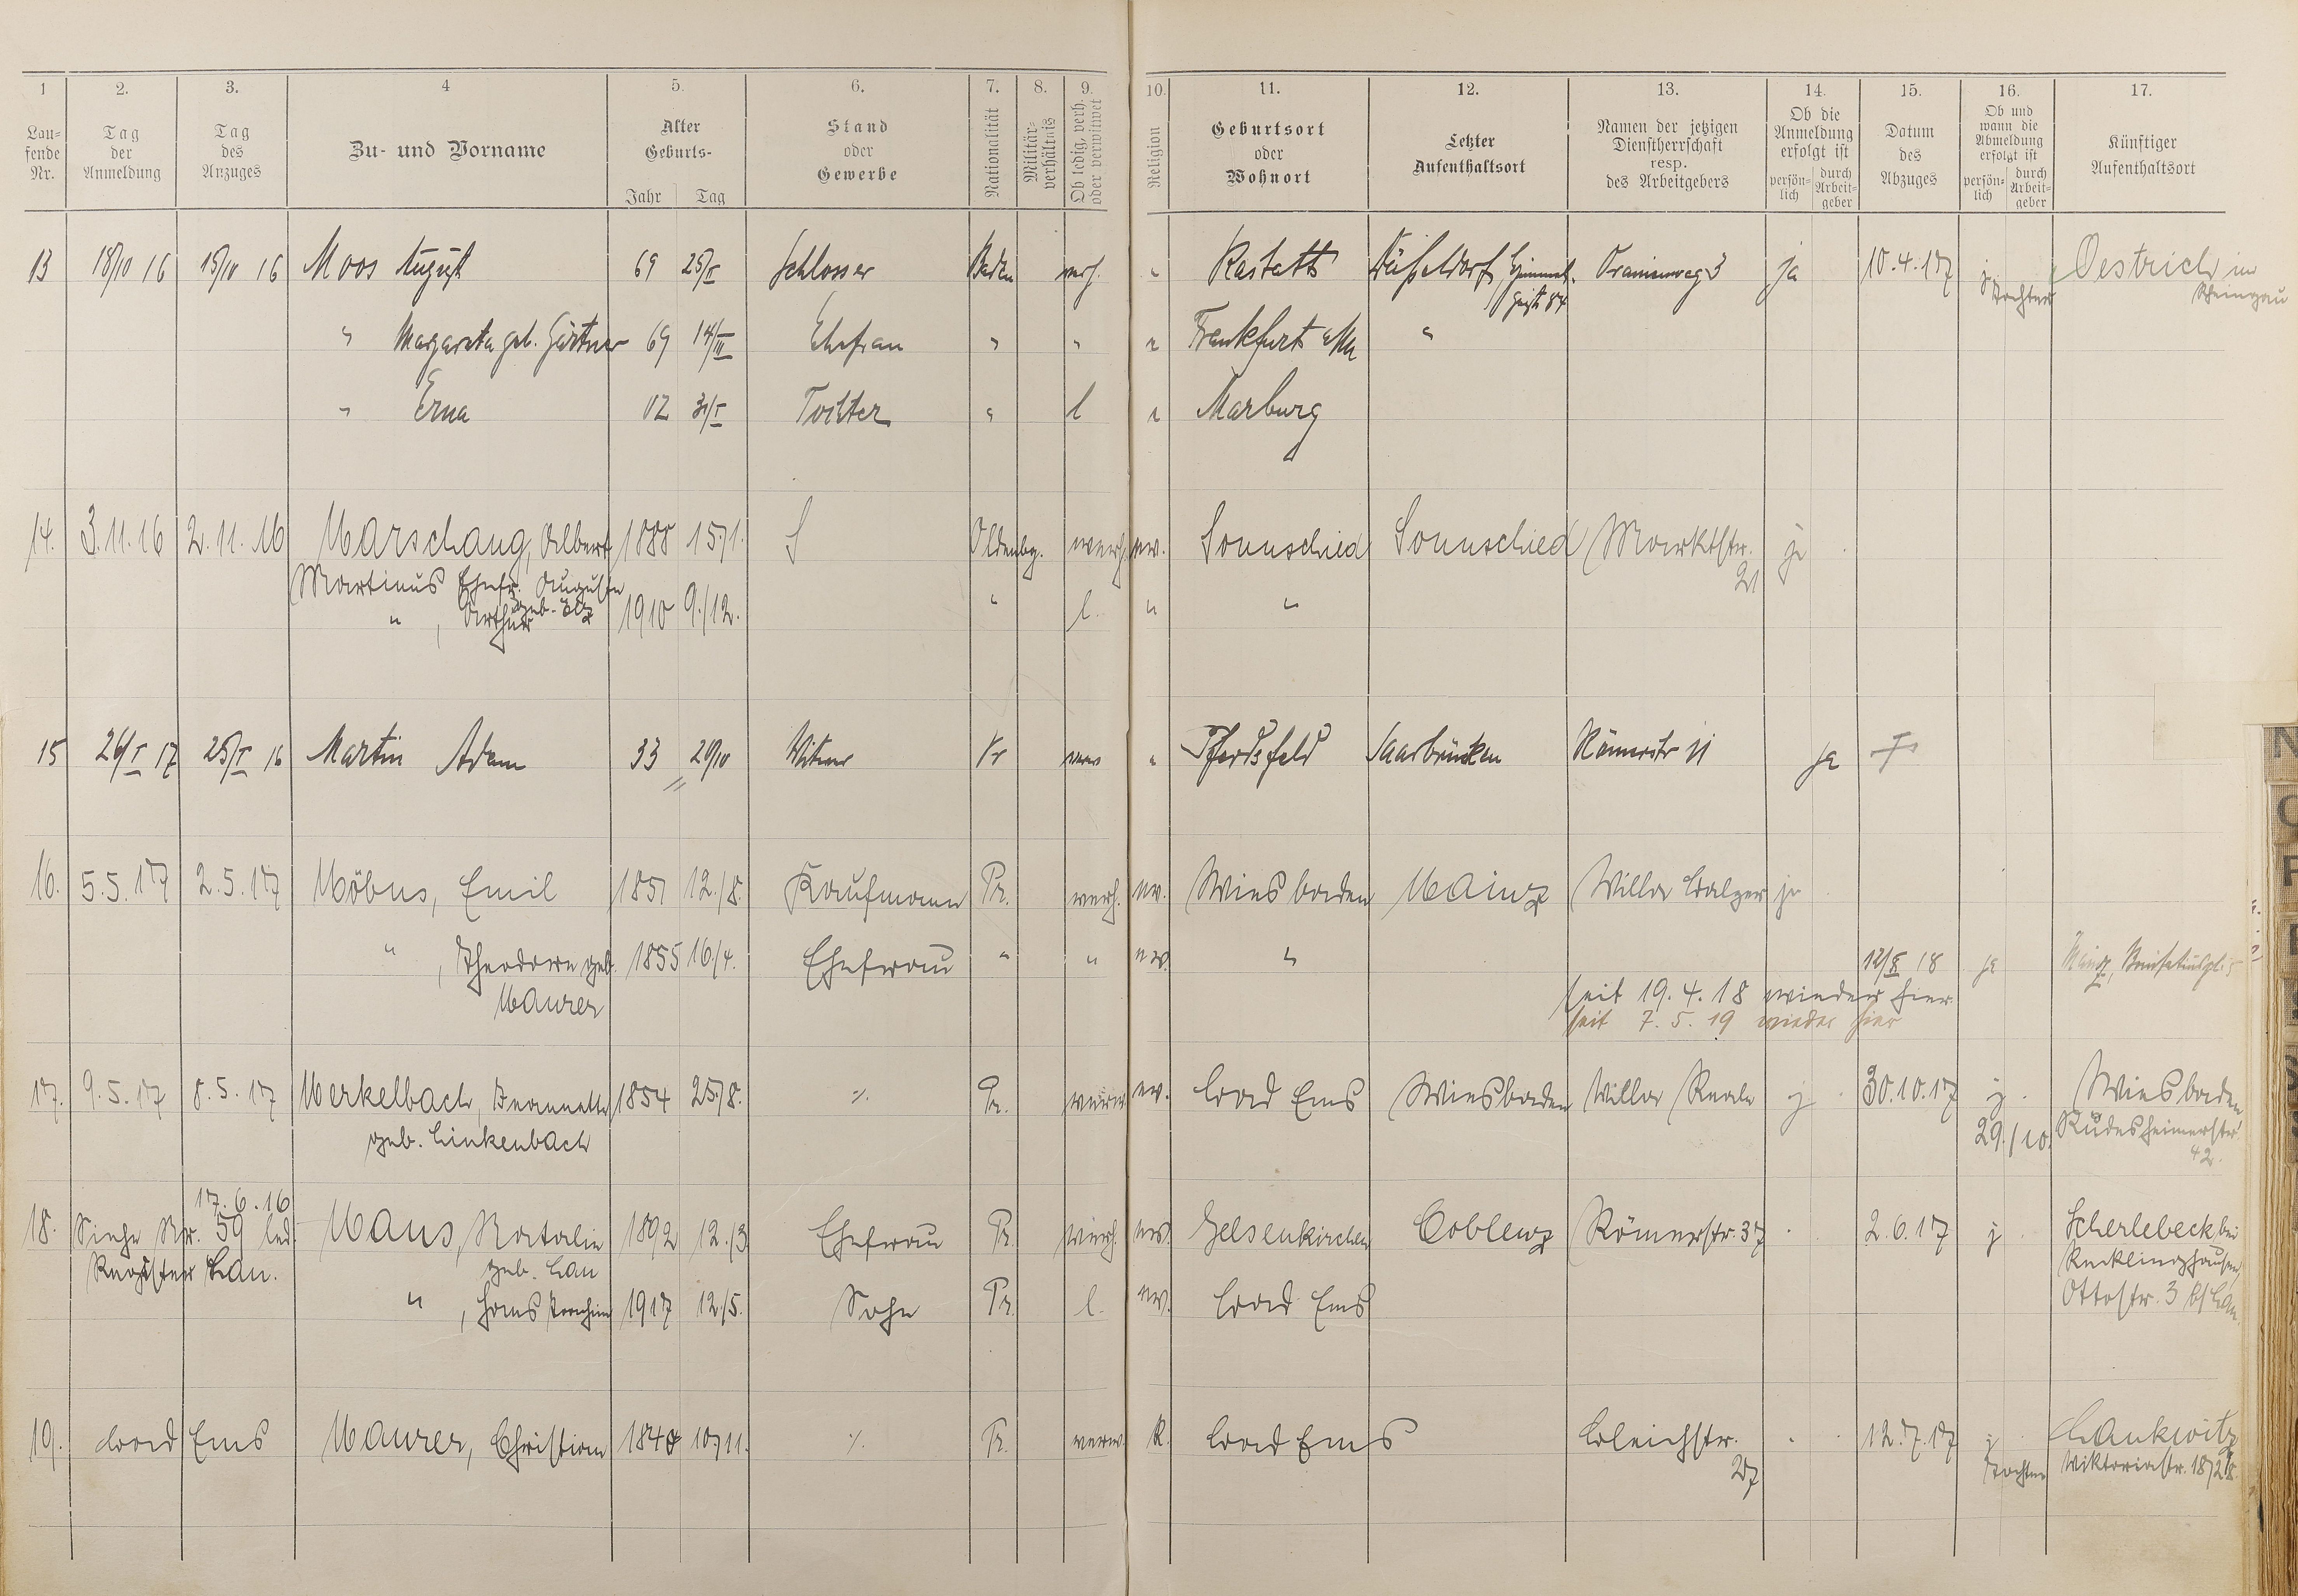 1 2. 3. 4 5. 6. 7. 8. 9. 10. 11. 12. 13. 14. 15. 16. 17.
Lau-
fende
Nr.
Tag
der
Anmeldung
Tag
des
Anzuges
Zu- und Vorname
Alter
Geburts-
Jahr Tag
Stand
oder
Gewerbe
Nationalität
Militär-
verhältnis
Ob ledig, verh.
oder verwitwet
Religion
Geburtsort
oder
Wohnort
Letzter
Aufenthaltsort
Namen der jetzigen
Dienstherrschaft
resp.
des Arbeitgebers
Ob die
Anmeldung
erfolgt ist
persön-
lich
durch
Arbeit-
geber
Datum
des
Abzuges
Ob und
wann die
Abmeldung
erfolgt ist
persön-
lich
durch
Arbeit-
geber
Künftiger
Aufenthaltsort
13 18/10 16 15/10 16 Moos August 69 25/V Schlosser Baden verh. " Rastatt Düsseldorf, Oranienweg 3 ja 10.4.17 j Oestrich im
84 Tochter Rheingau
" Margareta geb. Gärtner 69 14/III Ehefrau " " " Frankfurt a/M "
" Erna 02 31/I Tochter " l " Marburg
14. 3.11.16 2.11.16 Marschang, Albert 1888 15./1. S Oldenbg. verh. ev. Sonnschied Sonnschied Marktstr. ja
21
Martinus Ehefr. Auguste
geb. Elz
" , Arthur 1910 9./12. " l. " "
15 26/I 17 25/I 16 Martin Adam 33 20/10 Witwer Pr verw " Pferdsfeld Saarbrücken Römerstr 11 ja †
16. 5.5.17 2.5.17 Möbus, Emil 1851 12./8. Kaufmann Pr. verh. ev. Wiesbaden Mainz Villa Balzer ja
" , Theodore geb. 1855 16./4. Ehefrau " " ev. " 12/X 18 ja Mainz, Bonifatiuspl.
Maurer
seit 19.4.18 wieder hier
seit 7.5.19 wieder hier
17. 9.5.17 8.5.17 Merkelbach, Jeannette 1854 25./8. ./. Pr. verw. ev. Bad Ems Wiesbaden Villa Reale j 30.10.17 j. Wiesbaden
geb. Linkenbach 29./10. Rüdesheimerstr.
42.
17.6.16
18. Siehe Nr. 59 led. Maus, Natalie 1892 12./3. Ehefrau Pr. verh. ev. Gelsenkirchen Coblenz Römerstr. 37 2.6.17 j Scherlebeck bei
Register Lau. geb. Lau Recklinghausen
" , Hans Joachim 1917 12./5. Sohn Pr. l. ev. Bad Ems Ottostr. 3 b/ Lau.
19. Bad Ems Maurer, Christian 1848 10./11. ./. Pr. verw. K. Bad Ems Bleichstr. 12.7.17 j Lankwitz
27 Tochter Viktoriastr.